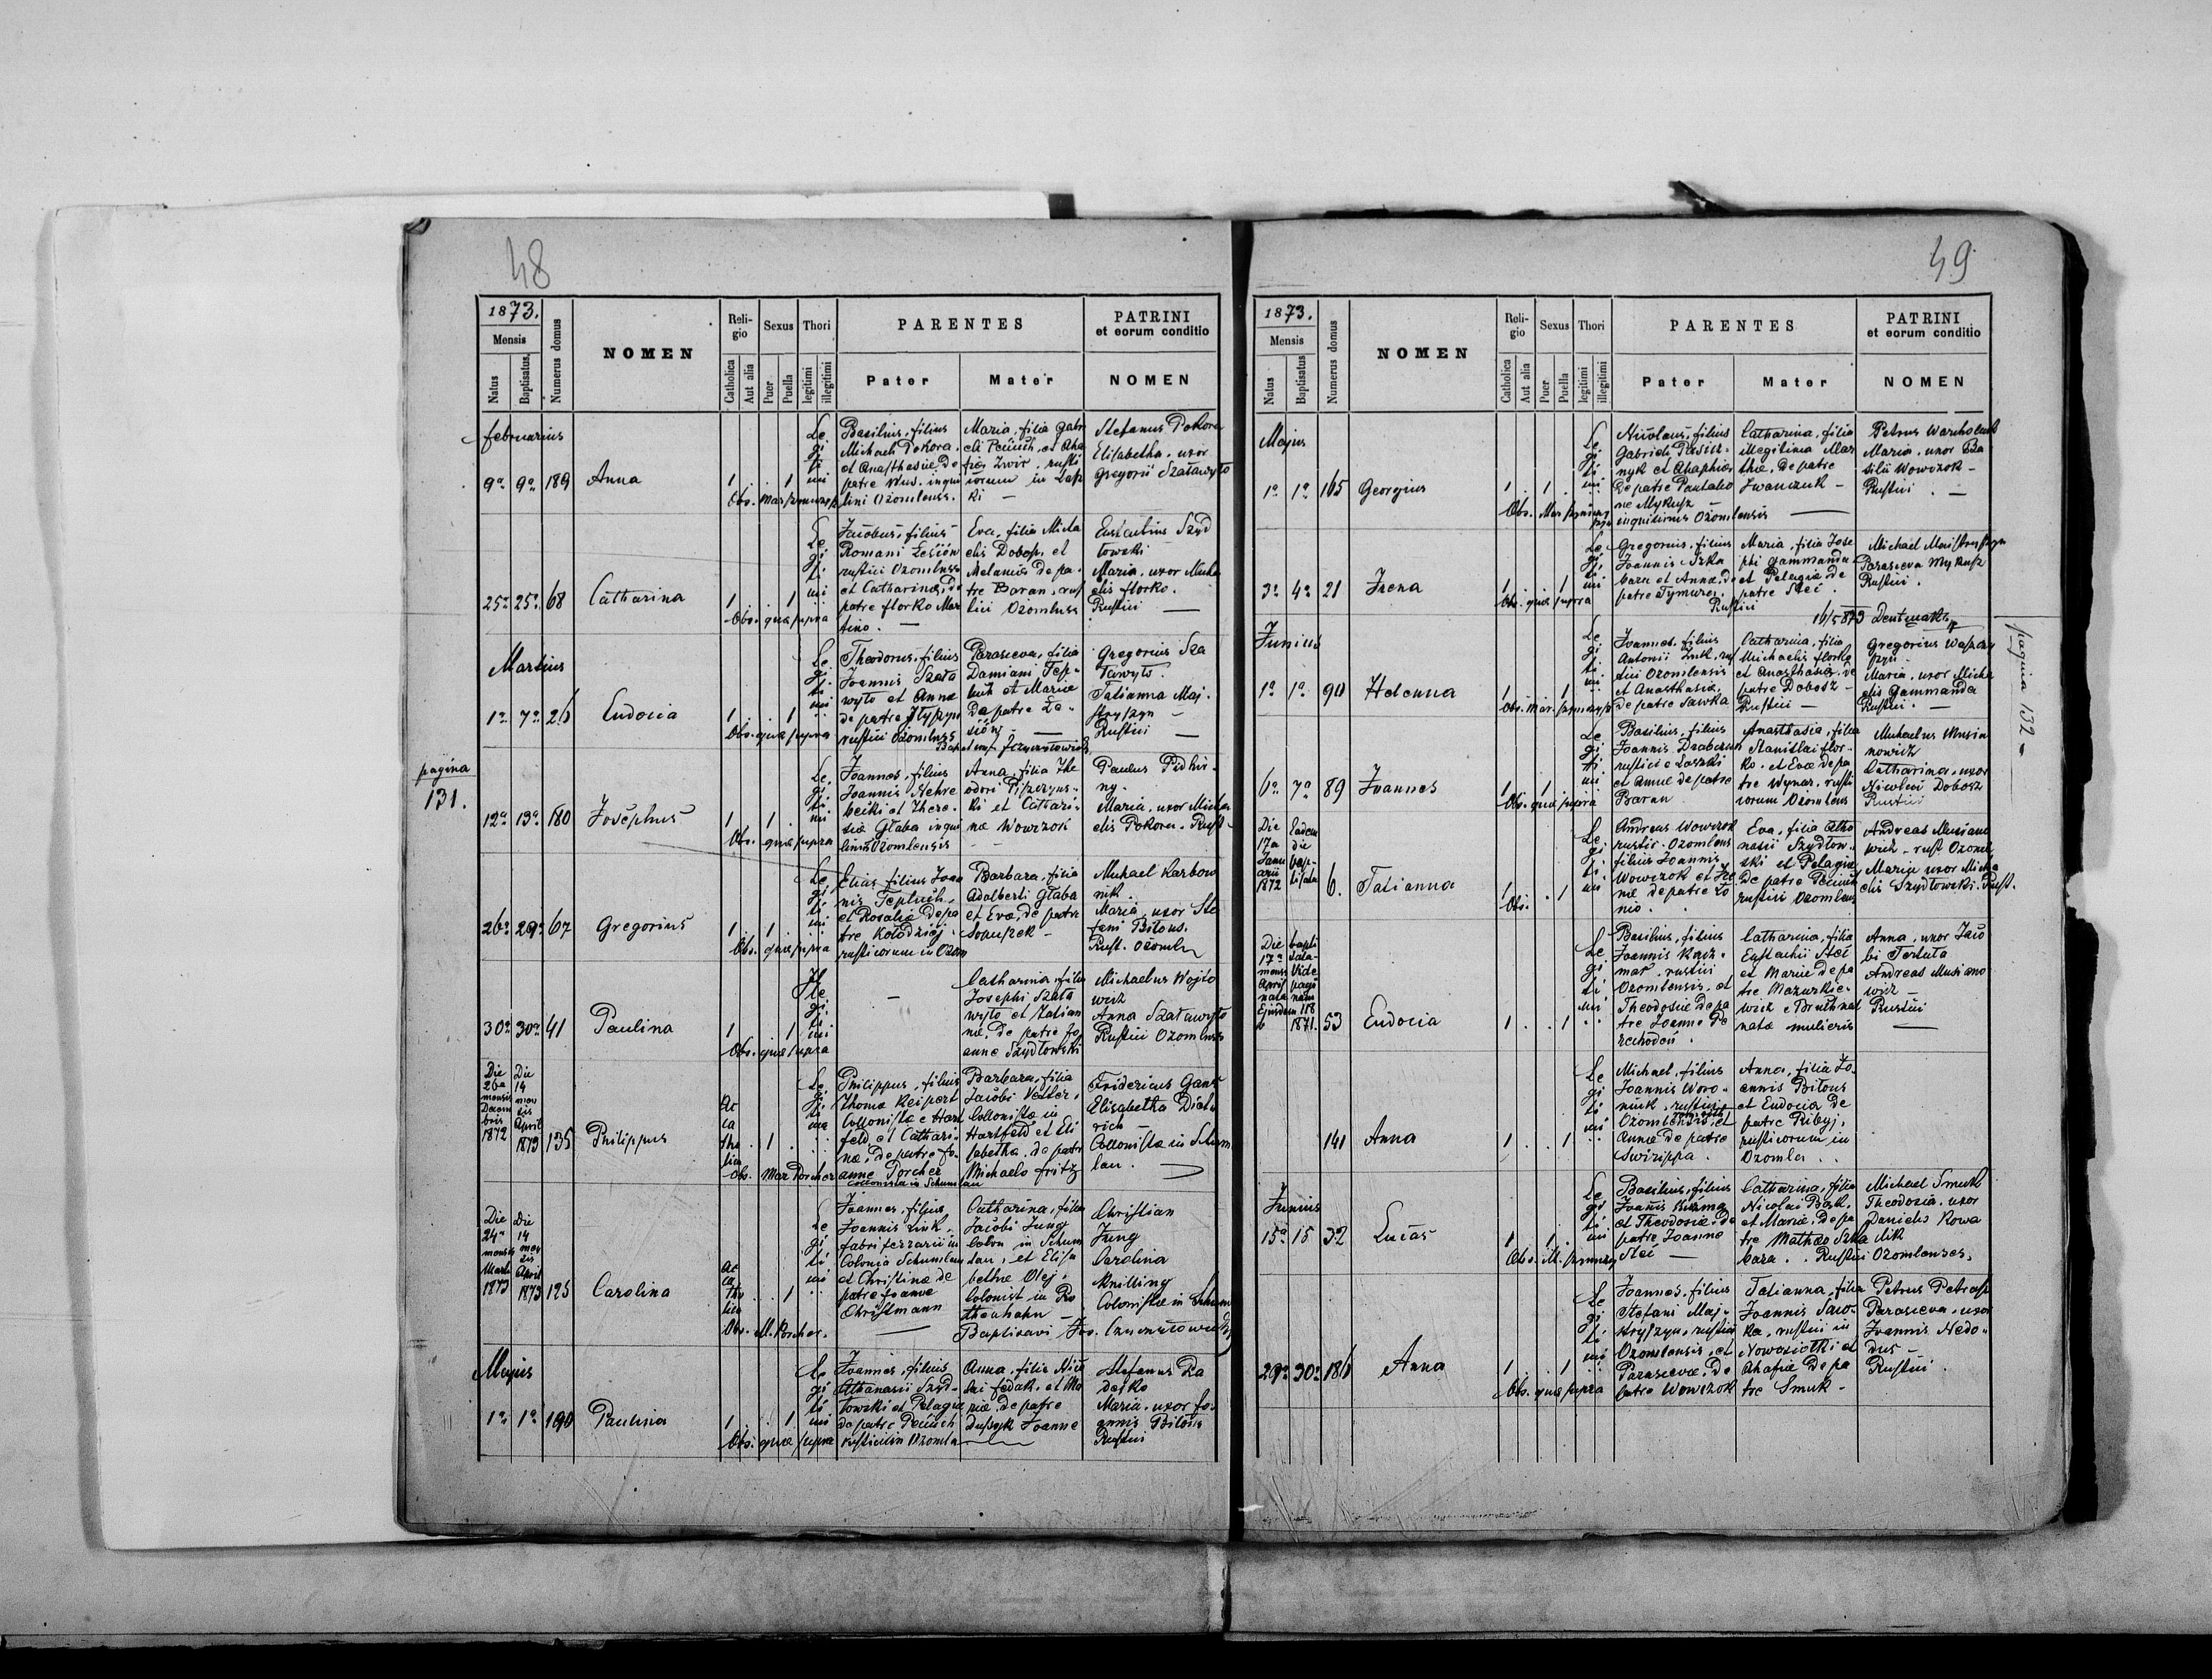 48
1873.
Mensis
Natus
Baptisatus.
Numerus domus
NOMEN
Reli-
gio
Catholica
Aut alia
Sexus
Puer
Puella
Thori
legitimi
illegitimi
PARENTES
Pater
Mater
PATRINI
et eorum conditio
NOMEN
februarius
9a 9a 189 Anna
1 . . 1
Le
gi
ti
mi
Basilius, filius
Michaeli Pokora.
et Anasthasiæ. De
patre
lini Ozomlenss.
Maria, filia Gabri
eli
fiæ Zwir. rusti
corum in
ki —
Stefanus Pokora
Elisabetha. uxor
Gregorii Szaławyło
25a 25a 68 Catharina
1 . . 1
Obs. quæ supra
Le
gi
ti
mi
Jacobus, filius
Romani
rustici Ozomlenss
et Catharinæ, de
patre florko Mar
tino. —
Eva, filia Micha
elis Dobosz. et
Melaniæ de pa-
tre Baran, rus
tici Ozomlenss
Eustachius Szyd
łowski
Maria, uxor Micha
elis florko.
Rustici —
Martius
1a 7a 26 Eudocia
1 . . 1
Obs. quæ supra
Le
gi
ti
mi
Theodorus, filius
Joannis Szała
wyło et Annæ
de patre
rustici Ozomlenss
Parasceva, filia
Damiani Tep-
luch et Mariæ
De patre Le-
siów —
Gregorius Sza
ławyło.
Tatianna Maj-
stryszyn —
Rustici —
pagina
131.
12a 13a 180 Josephus
1 . 1 .
Obs. quæ supra
Le
gi
ti
mi
Joannes, filius
Joannis Nehre
becki et There-
siæ Głaba inqui
linus Ozomlensis
Anna, filia The
odori
ki et Cathari-
næ Wowczok
— —
Paulus Pidhir-
ny.
Maria, uxor Micha
elis Pokora. Rust
26a 29a 67 Gregorius
1 . 1 .
Obs. quæ supra
Le
gi
ti
mi
Elias, filius Joan
nis Tepluch,
et Rosaliæ de pa
tre Kołodziej.
rusticorum in Ozom
Barbara, filia
Adalberti Głaba
et Evæ, de patre
Sopuszek —
Michael Karbow
nik.
Maria, uxor Ste
fani Biłous.
Rust. Ozomla
30a 30a 41 Paulina
1 . . 1
Obs. quæ supra
Il
le
gi
ti
mi
—
Catharina, filia
Josephi Szała
wyło et Tatian
næ. De patre Jo
anne Szydłowski
Michaelus Wojto
wicz
Anna Szaławyło
Rustici Ozomlenses
Die
26a
mensis
Decem
bris
1872
Die
14
men
sis
April
1873
135 Philippus
Ac
ca
tho
lica
. 1 .
Obs. Mar Porcher
Le
gi
ti
mi
Philippus, filius
Thomæ Reipert
Collonistæ e Hart
feld, et Cathari-
næ, De patre Jo-
anne Porcher
collonista in Schumlau
Barbara, filia
Jacobi Vetter,
Collonistæ in
Hartfeld et Eli
sabetha. de patre
Michaele fritz
Fridericus Gans
Elisabetha Diet
rich —
Collonistæ in Schum
lau. —
Die
24a
mensis
Martii
1873
Die
14
men
sis
April
1873
125 Carolina
Ac
ca
tho
lica
. . 1
Obs. M. Porcher.
Le
gi
ti
mi
Joannes, filius
Joannis Link,
fabri ferrarii in
Colonia Schumlau
et Christinæ de
patre Joanne
Christmann
—
Catharina, filia
Jacobi Jung
Colon in Schum
lau, et Elisa
bethæ Olej.
Colonist in Ro
thenhahn —
Christian
Jung
Carolina
Knilling
Colonistæ in Schum
Majus
1a 1a 190 Paulina
1 . . 1
Obs. quæ supra
Le
gi
ti
mi
Joannes, filius
Athanasii Szyd-
łowski et Pelagiæ
de patre
rusticus in Ozomla
Anna, filia Nico
lai fedak, et Ma
riæ, de patre
Joanne
Stefanus Ra
desko
Maria, uxor Jo-
annis Biłous
Rustici
49
1873.
Mensis
Natus
Baptisatus
Numerus domus
NOMEN
Reli-
gio
Catholica
Aut alia
Sexus
Puer
Puella
Thori
legitimi
illegitimi
PARENTES
Pater
Mater
PATRINI
et eorum conditio
NOMEN
Majus
1a 1a 165 Georgius
1 . 1 .
Le
gi
ti
mi
Nicolaus, filius
Gabrieli
nyk et Ahaphiæ
De patre Pantaleo
ne Mykusz
inquilinus Ozomlensis —
Catharina, filia
illegitima Mar
thæ, de patre
Iwanczuk —
Petrus Warcholak
Maria, uxor Ba
silii Wowczok —
Rustici . —
3a 4a 21 Irena
1 . . 1
Obs. quæ supra
Le
gi
ti
mi
Gregorius, filius
Joannis Szka
bara et Annæ, de
patre Tymura.
Rustici
Maria, filia Jose
phi Gammanda
et Pelagiæ de
patre Steć.
Michael Majstryszyn
Parasceva Mykusz
Rustici.
16/5 873
pagina 132
Junius
1a 1a 90 Helenna
1 . . 1
Le
gi
ti
mi
Joannes, filius
Antonii
tici Ozomlensis
et Anasthasiæ,
de patre Sawka
Catharina, filia
Michaelis florko
et Anasthasiæ, de
patre Dobosz —
Rustici —
Gregorius
Maria, uxor Micha
elis Gammanda
Rustici . —
6a 7a 89 Joannes
1 . 1 .
Obs. quæ supra
Le
gi
ti
mi
Basilius, filius
Joannis
rustici e Laszki
et Annæ de patre
Baran
Anasthasia, filia
Stanislai flor-
ko. et Evæ de pa
tre Wynar, rusti
corum Ozomlens
Michaelus Musia
nowicz
Catharina, uxor
Nicolai Dobosz
Rustici
Die
17a
Janu
arii
1872
Eadem
die
bap-
tisata
6. Tatianna
1 . . 1
Obs.
Le
gi
ti
mi
Andreas Wowczok
rustic. Ozomlens
filius Joannis
Wowczok et Ire
næ de patre
Eva, filia Atha
nasii Szydłow-
ski et Pelagiæ
De patre
rustici Ozomlens
Andreas Musiano
wicz — rust Ozoml
Maria uxor Micha
elis Szydłowski. Rust.
Die
17a
mensis
April
nata
bapti
sata
Vide
pagi
nam
118
1871.
53 Eudocia
1 . . 1
Le
gi
ti
mi
Basilius, filius
Joannis Kacz-
mar. rustici
Ozomlensis, et
Theodosiæ De pa
tre Joanne De
zahodeń.
Catharina, filia
Eustachii Steć
et Mariæ de pa
tre Mazurkie-
wicz e Bruchnal
natæ mulieris
Anna, uxor Jaco
bi Tertuta
Andreas Musiano
wicz —
Rustici
—
141 Anna
1 . . 1
Le
gi
ti
mi
Michael, filius
Joannis Woro-
niuk, rustici
Ozomlensis, et
Annæ De patre
Swirippa.
Anna, filia Jo-
annis Biłous
et Eudociæ De
patre
rusticorum in
Ozomla . .
Junius
15a 15 32 Lucas
1 . 1 .
Le
gi
ti
mi
Basilius, filius
Joannis
et Theodosiæ, de
patre Joanne
Steć —
Catharina, filia
Nicolai
et Mariæ, De pa
tre Mathæo Szka
bara . . Rustici Ozomlenses.
Michael Smuk
Theodozia, uxor
Danielis Kowa
lik
29a 30a 186 Anna
1 . . 1
Obs. quæ supra
Le
gi
ti
mi
Joannes, filius
Stefani Maj-
stryszyn, rustici
Ozomlensis, et
Parascevæ, De
patre Wowczok
Tatianna, filia
Joannis Saw-
ka, rustici in
Nowosiołki et
Ahafiæ De pa
tre Smuk —
Petrus
Parasceva, uxor
Joannis Nedo-
dus —
Rustici.